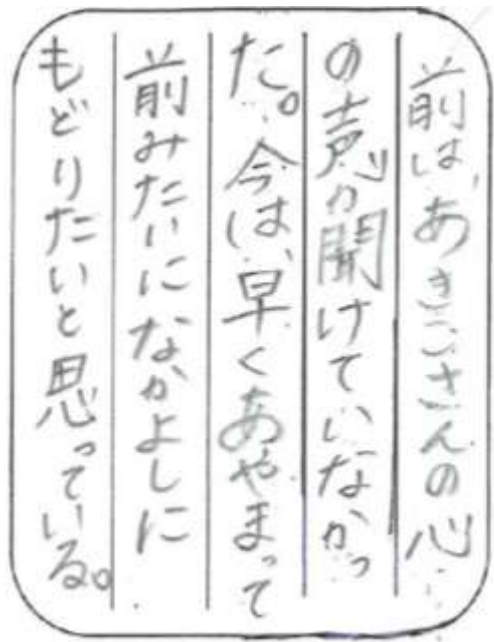 前は、あきこさんの心
の声が聞けていなかっ
た。今は、早くあやまって
前みたいになかよしに
もどりたいと思っている。